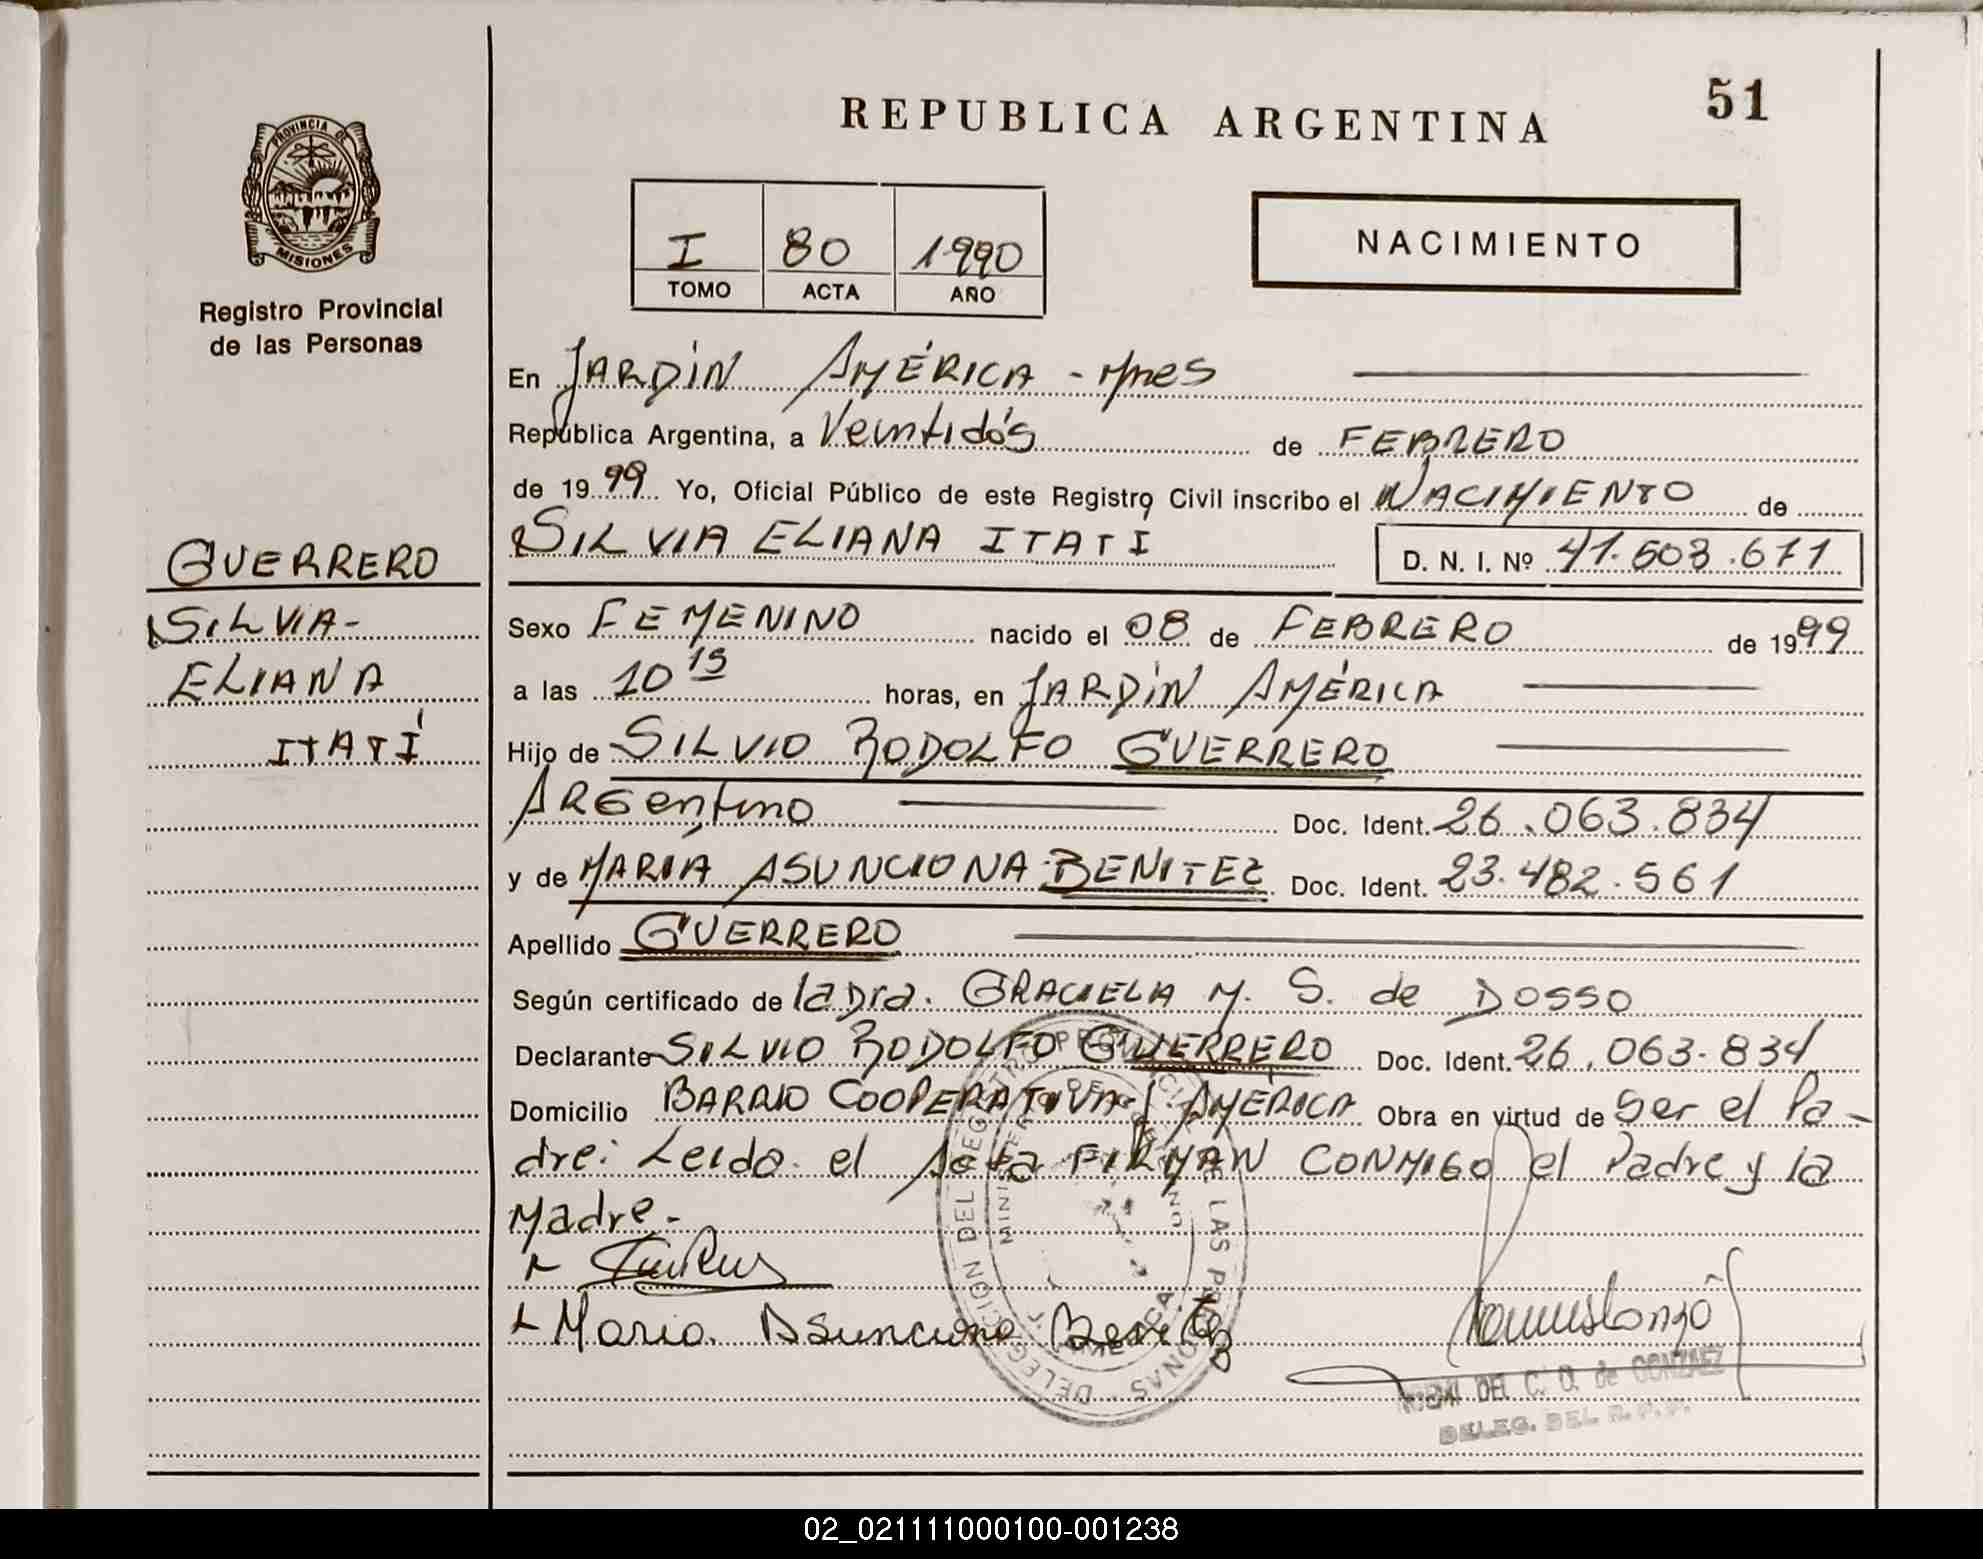 51
REPUBLICA ARGENTINA
PROVINCIA DE
MISIONES
Registro Provincial
de las Personas
I 80 1990
TOMO ACTA AÑO
NACIMIENTO
En JARDÍN AMÉRICA - Mnes
República Argentina, a Veintidós de FEBRERO
de 1999 Yo, Oficial Público de este Registro Civil inscribo el NACIMIENTO de
SILVIA ELIANA ITATÍ D. N. I. Nº 41.503.671
GUERRERO
SILVIA-
ELIANA
ITATÍ
Sexo FEMENINO nacido el 08 de FEBRERO de 1999
a las 10 15 horas, en JARDÍN AMÉRICA
Hijo de SILVIO RODOLFO GUERRERO
ARGentino Doc. Ident. 26.063.834
y de MARIA ASUNCIONA BENITEZ Doc. Ident. 23.482.561
Apellido GUERRERO
Según certificado de la Dra. GRACIELA M. S. de DOSSO
Declarante SILVIO RODOLFO GUERRERO Doc. Ident. 26.063.834
Domicilio BARRIO COOPERATIVA-J. AMÉRICA Obra en virtud de ser el Pa-
dre: Leida el Acta FIRMAN CONMIGO el Padre y la
Madre.-
Maria Asunciona Benitez
DEL C. O. de GONZALEZ
DELEG. DEL R. P. P.
02_021111000100-001238